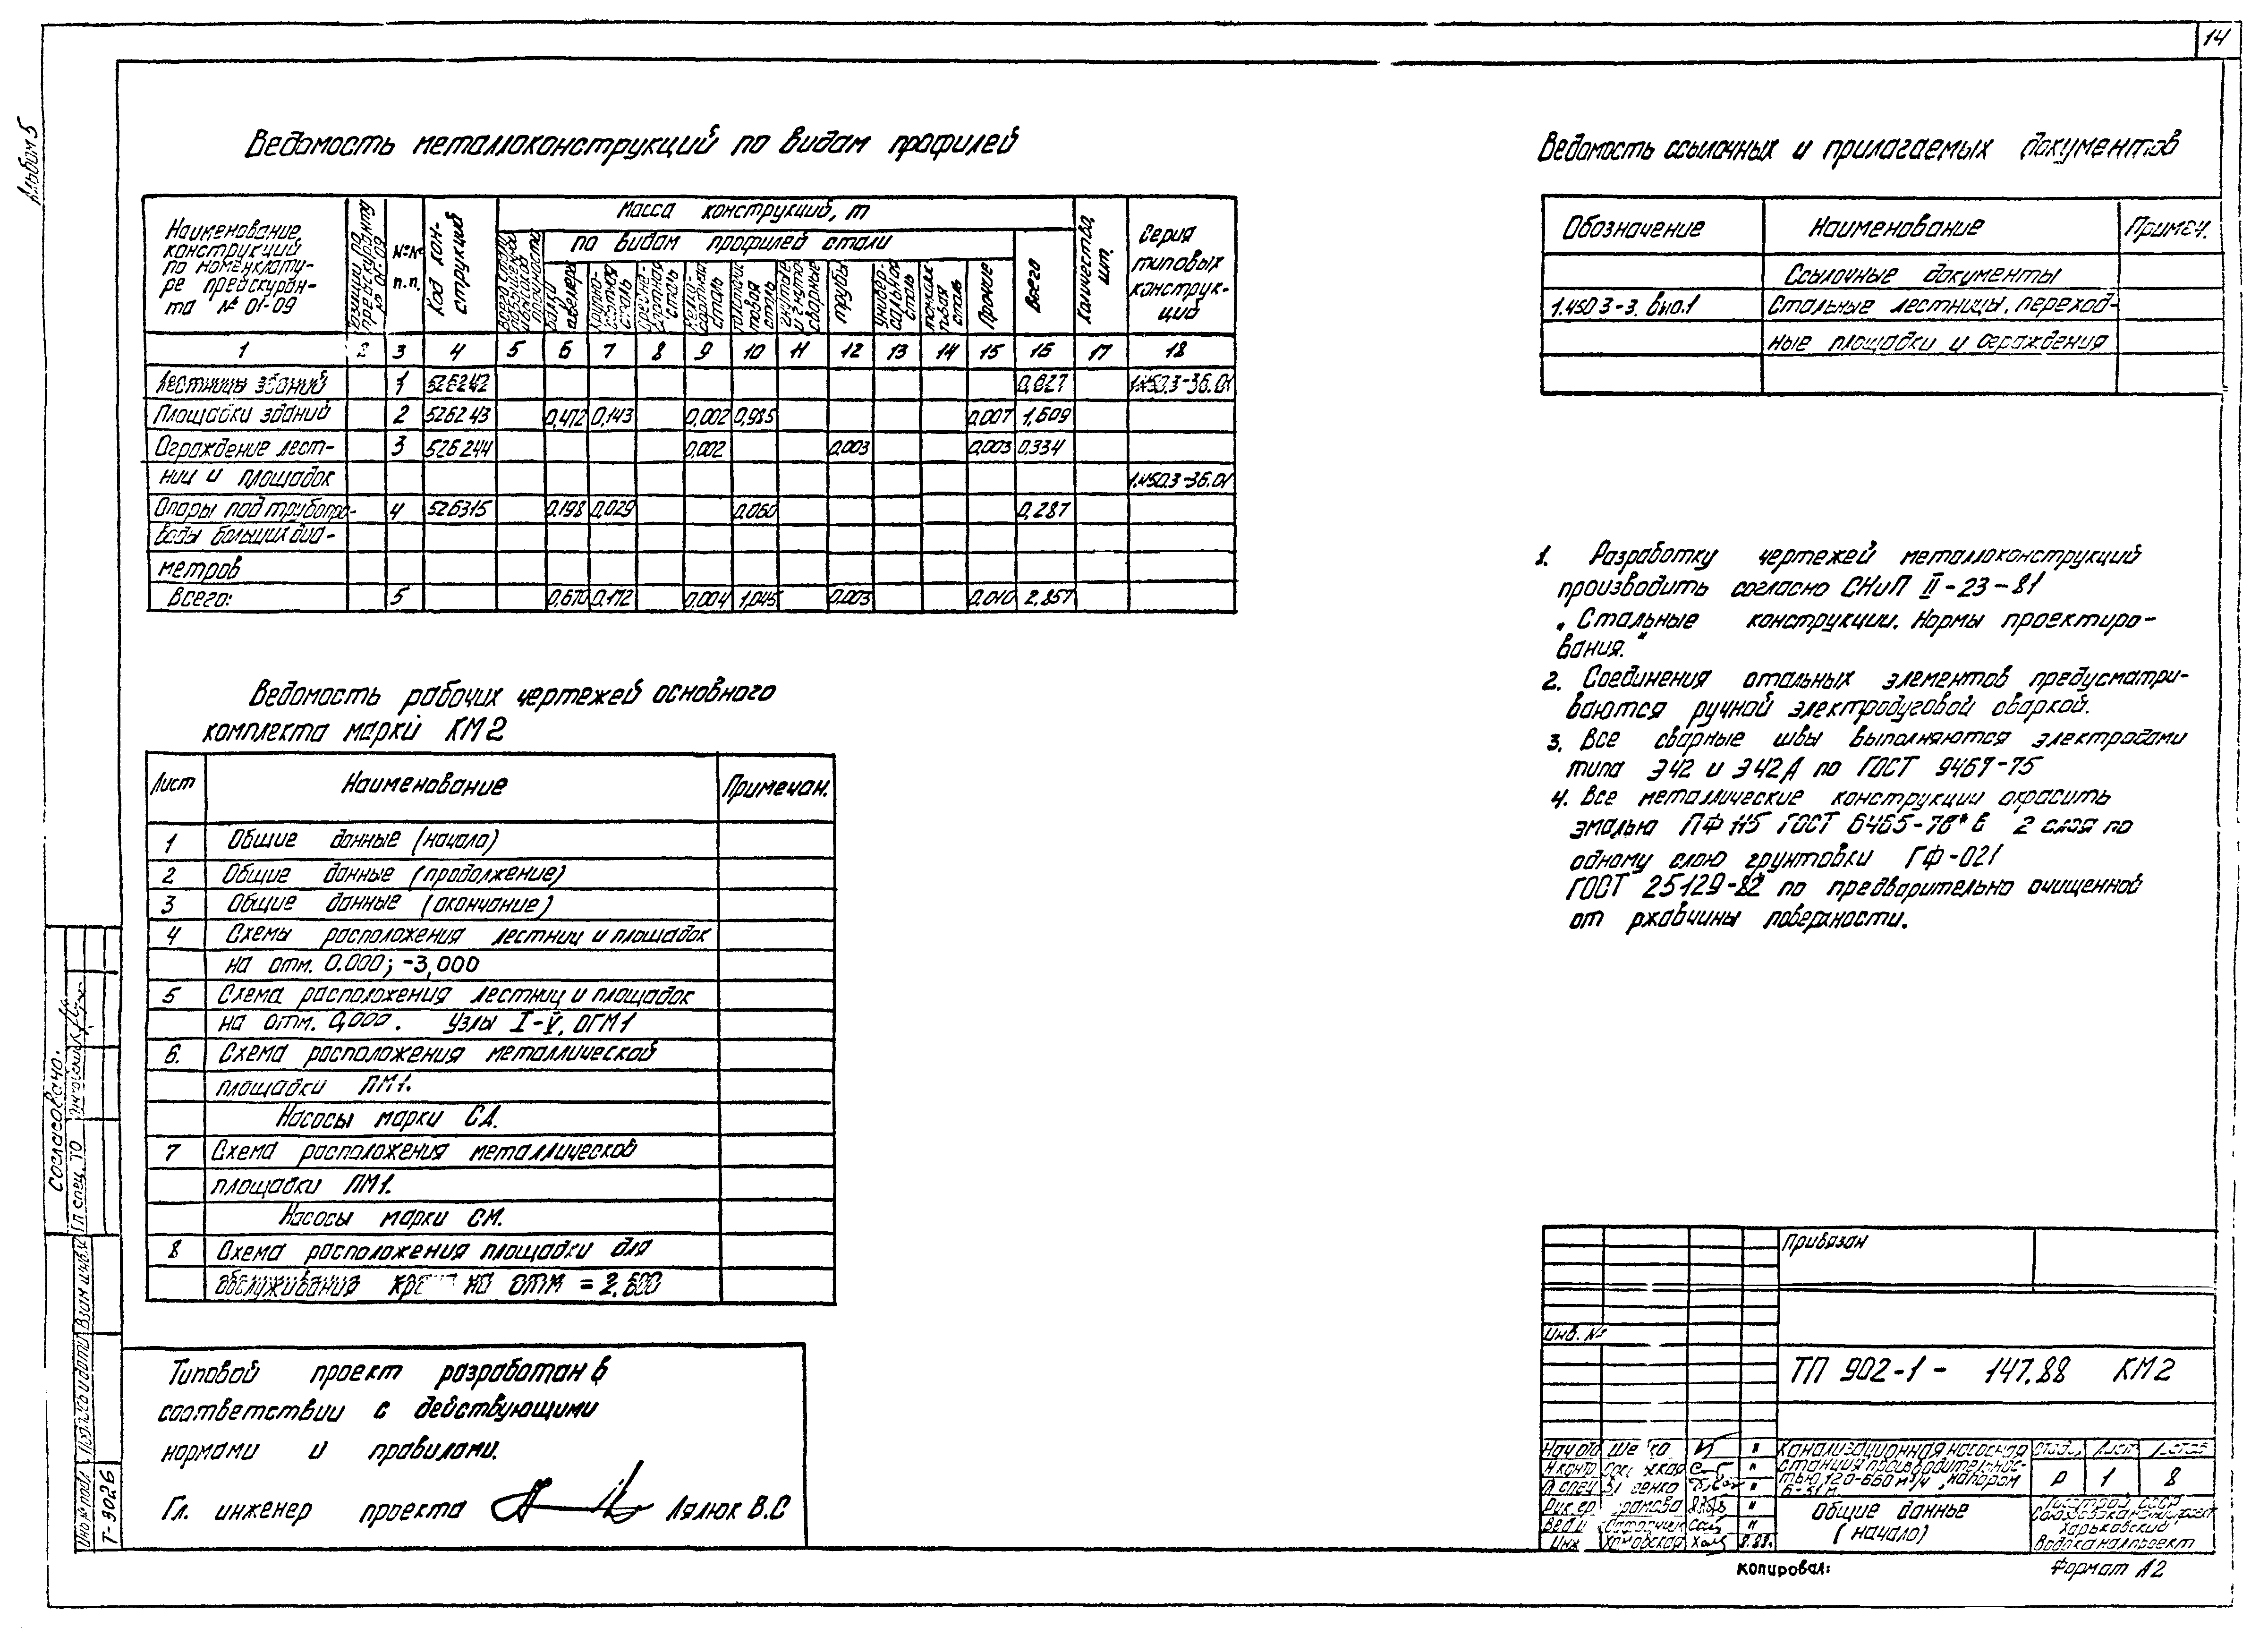 14
Альбом 5
Ведомость металлоконструкций по видам профилей
Наименование
конструкций
по номенклату-
ре прейскуран-
та № 01-09
№№
п.п.
Код кон-
струкций
Масса конструкций, т
по видам профилей стали
Балки
швеллеры
Крупно-
сортная
сталь
Средне-
сортная
сталь
Мелко-
сортная
сталь
Толстолис-
товая
сталь
трубы
Универ-
сальная
сталь
Прочие
Всего
Количество,
шт.
Серия
типовых
конструк-
ций
1 2 3 4 5 6 7 8 9 10 11 12 13 14 15 16 17 18
Лестницы зданий 1 526242 0,627 1.450.3-3б.01
Площадки зданий 2 526243 0,472 0,143 0,002 0,985 0,007 1,609
Ограждение лест- 3 526244 0,002 0,003 0,003 0,334
ниц и площадок 1.450.3-3б.01
Опоры под трубопро- 4 526315 0,198 0,029 0,060 0,287
воды больших диа-
метров
Всего: 5 0,670 0,172 0,004 1,045 0,003 0,010 2,857
Ведомость ссылочных и прилагаемых документов
Обозначение Наименование Примеч.
Ссылочные документы
1.450 3-3. вып.1 Стальные лестницы, переход-
ные площадки и ограждения
1. Разработку чертежей металлоконструкций
производить согласно СНиП II-23-81
„Стальные конструкции. Нормы проектиро-
вания."
2. Соединения стальных элементов предусматри-
ваются ручной электродуговой сваркой.
3. Все сварные швы выполняются электродами
типа Э42 и Э42А по ГОСТ 9467-75
4. Все металлические конструкции окрасить
эмалью ПФ 115 ГОСТ 6465-76* в 2 слоя по
одному слою грунтовки ГФ-021
ГОСТ 25129-82 по предварительно очищенной
от ржавчины поверхности.
Ведомость рабочих чертежей основного
комплекта марки КМ2
Лист Наименование Примечан.
1 Общие данные (начало)
2 Общие данные (продолжение)
3 Общие данные (окончание)
4 Схемы расположения лестниц и площадок
на отм. 0.000; -3,000
5 Схема расположения лестниц и площадок
на отм. 0,000. Узлы I-V, ОГМ1
6. Схема расположения металлической
площадки ПМ1.
Насосы марки СД.
7 Схема расположения металлической
площадки ПМ1.
Насосы марки СМ.
8 Схема расположения площадки для
обслуживания на отм = 2,600
Типовой проект разработан в
соответствии с действующими
нормами и правилами.
Гл. инженер проекта Лялюк В.С
Согласовано:
Гл спец. ТО
Взам инв.№
Подпись и дата
Инв № подл
Т-9026
Привязан
Инв. №
ТП 902-1- 147.88 КМ2
Нач отд
Н контр
Гл спец
Рук.гр
Вед и
Инж 8.88.
Канализационная насосная
станция производительнос-
тью 120-660 м³/ч, напором
6-51 м.
Общие данные
(начало)
Стад. Лист Листов
Р 1 8
Госстрой СССР
Союзводоканалпроект
Харьковский
Водоканалпроект
Копировал:
Формат А2